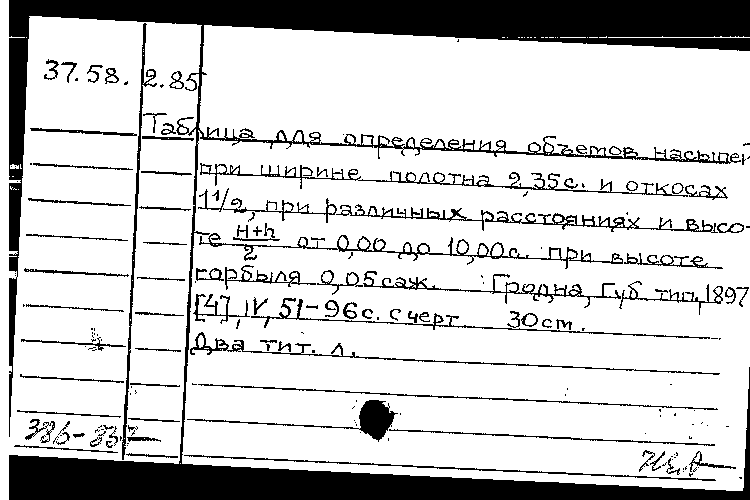 37.58. 2.85
Таблица для определения объемов насыпей
при ширине полотна 2,35с. и откосах
1 1/2, при различных расстояниях и высо-
те H+h/2 от 0,00 до 10,00с. при высоте
горбыля 0,05саж. Гродна, Губ. тип., 1897
[4], IV, 51-96с. с черт. 30см.
Два тит. л.
386-837